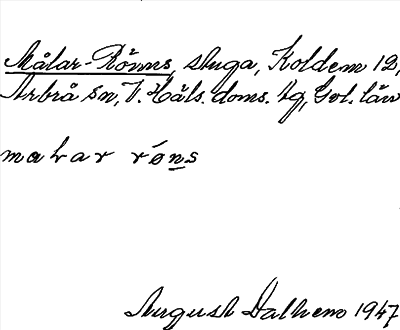 Målar-Rönns, stuga, Koldemo 12,
Arbrå sn, V. Häls. doms. tg, Gvl. län
målar röns
August Dalhem 1947